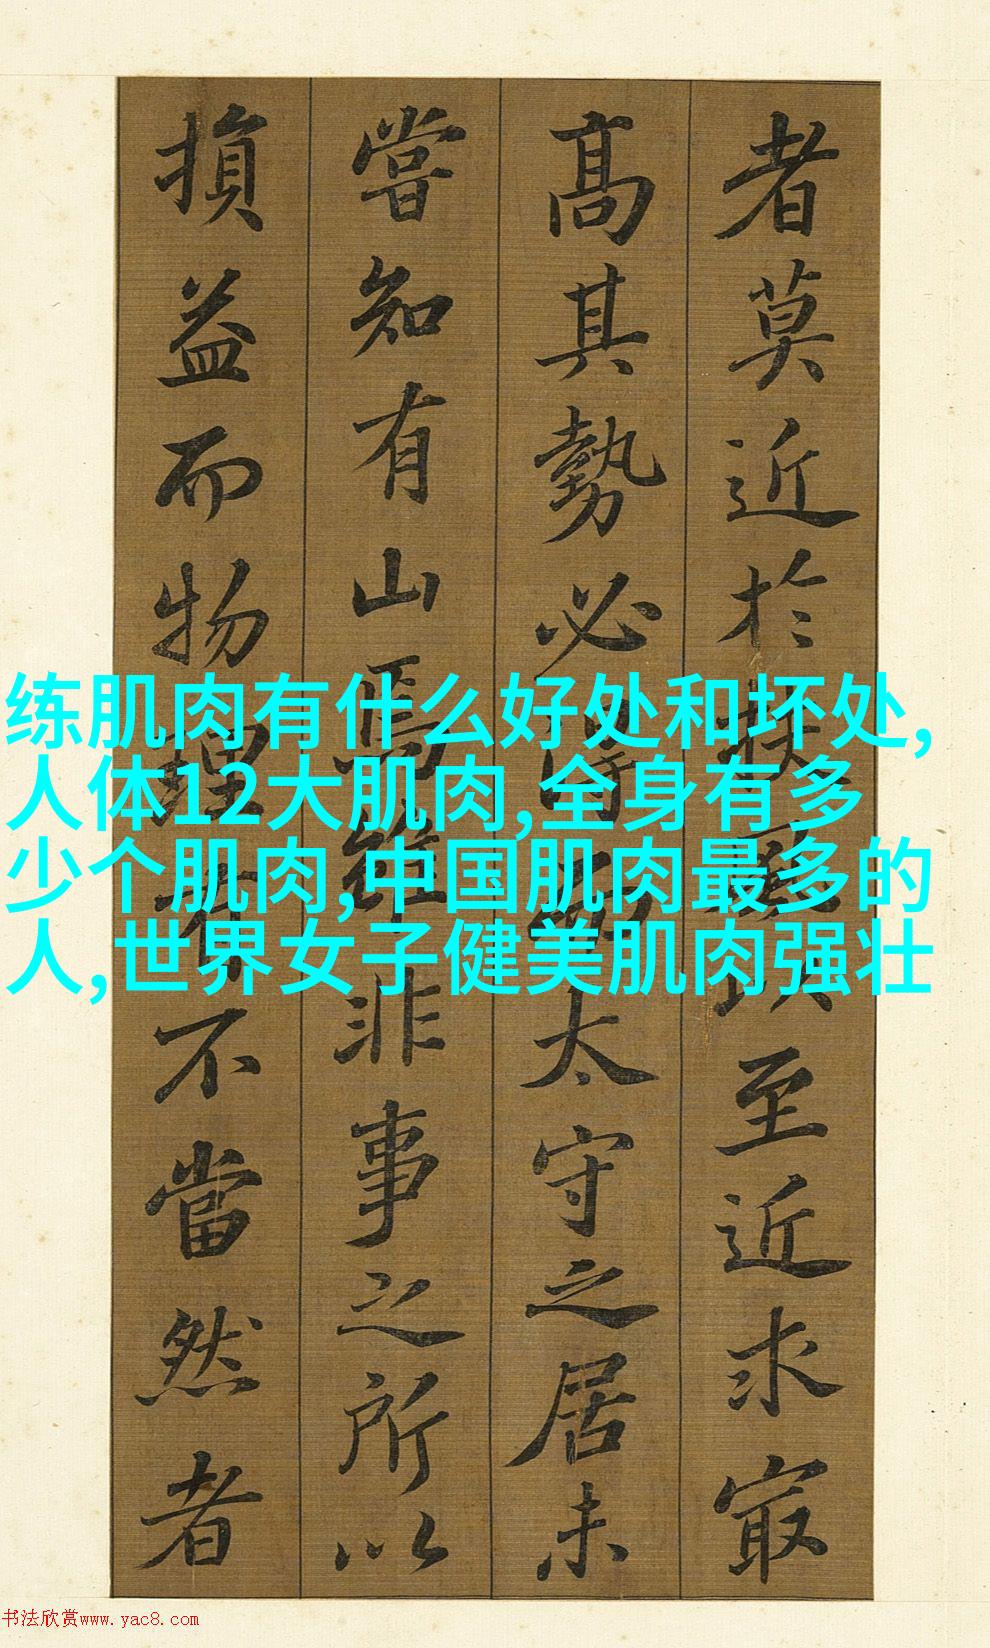 者莫近於扶以至近求冣
高其勢必得太守之居未
嘗知有山焉雖非事之所以
損益而物理有不當然者
练肌肉有什么好处和坏处,
人体12大肌肉,全身有多
少个肌肉,中国肌肉最多的
人,世界女子健美肌肉强壮
书法欣赏www.yac8.com